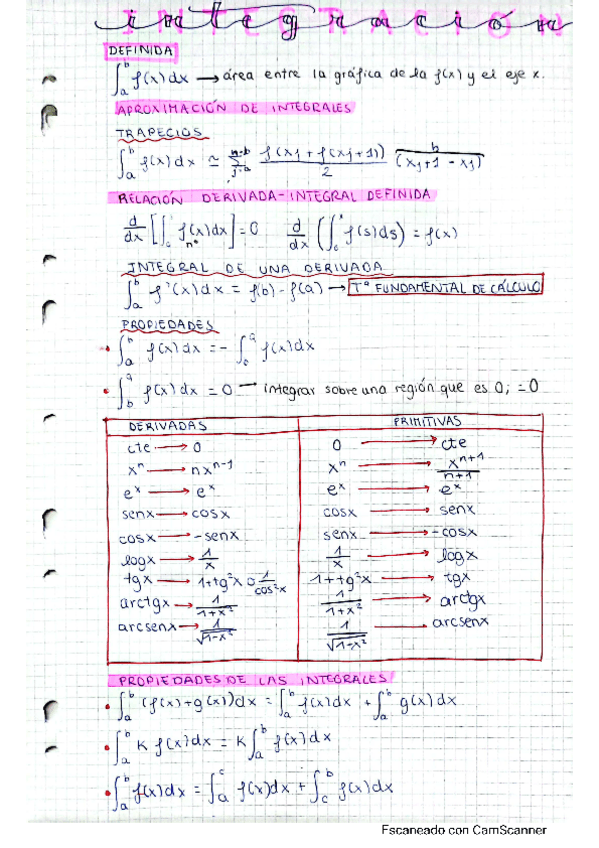 integración
DEFINIDA
∫ₐᵇ f(x)dx → área entre la gráfica de la f(x) y el eje x.
APROXIMACIÓN DE INTEGRALES
TRAPECIOS
∫ₐᵇ f(x)dx ≃ Σ (f(xj + f(xj+1))/2 (xj+1 - xj)
RELACIÓN DERIVADA-INTEGRAL DEFINIDA
d/dx [∫ f(x)dx] = 0 d/dx (∫ f(s)ds) = f(x)
nº
INTEGRAL DE UNA DERIVADA
∫ₐᵇ f'(x)dx = f(b) - f(a) → Tª FUNDAMENTAL DE CÁLCULO
PROPIEDADES
• ∫ f(x)dx = - ∫ f(x)dx
• ∫ f(x)dx = 0 — integrar sobre una región que es 0; = 0
DERIVADAS PRIMITIVAS
cte → 0 0 → cte
xⁿ → nxⁿ⁻¹ xⁿ → xⁿ⁺¹/n+1
eˣ → eˣ eˣ → eˣ
senx → cosx cosx → senx
cosx → -senx senx → -cosx
logx → 1/x 1/x → logx
tgx → 1+tg²x o 1/cos²x 1+tg²x → tgx
arctgx → 1/1+x² 1/1+x² → arctgx
arcsenx → 1/√1-x² 1/√1-x² → arcsenx
PROPIEDADES DE LAS INTEGRALES
• ∫ₐᵇ (f(x)+g(x))dx = ∫ₐᵇ f(x)dx + ∫ₐᵇ g(x)dx
• ∫ₐᵇ K f(x)dx = K ∫ₐᵇ f(x)dx
• ∫ₐᵇ f(x)dx = ∫ₐᶜ f(x)dx + ∫꜀ᵇ f(x)dx
Escaneado con CamScanner